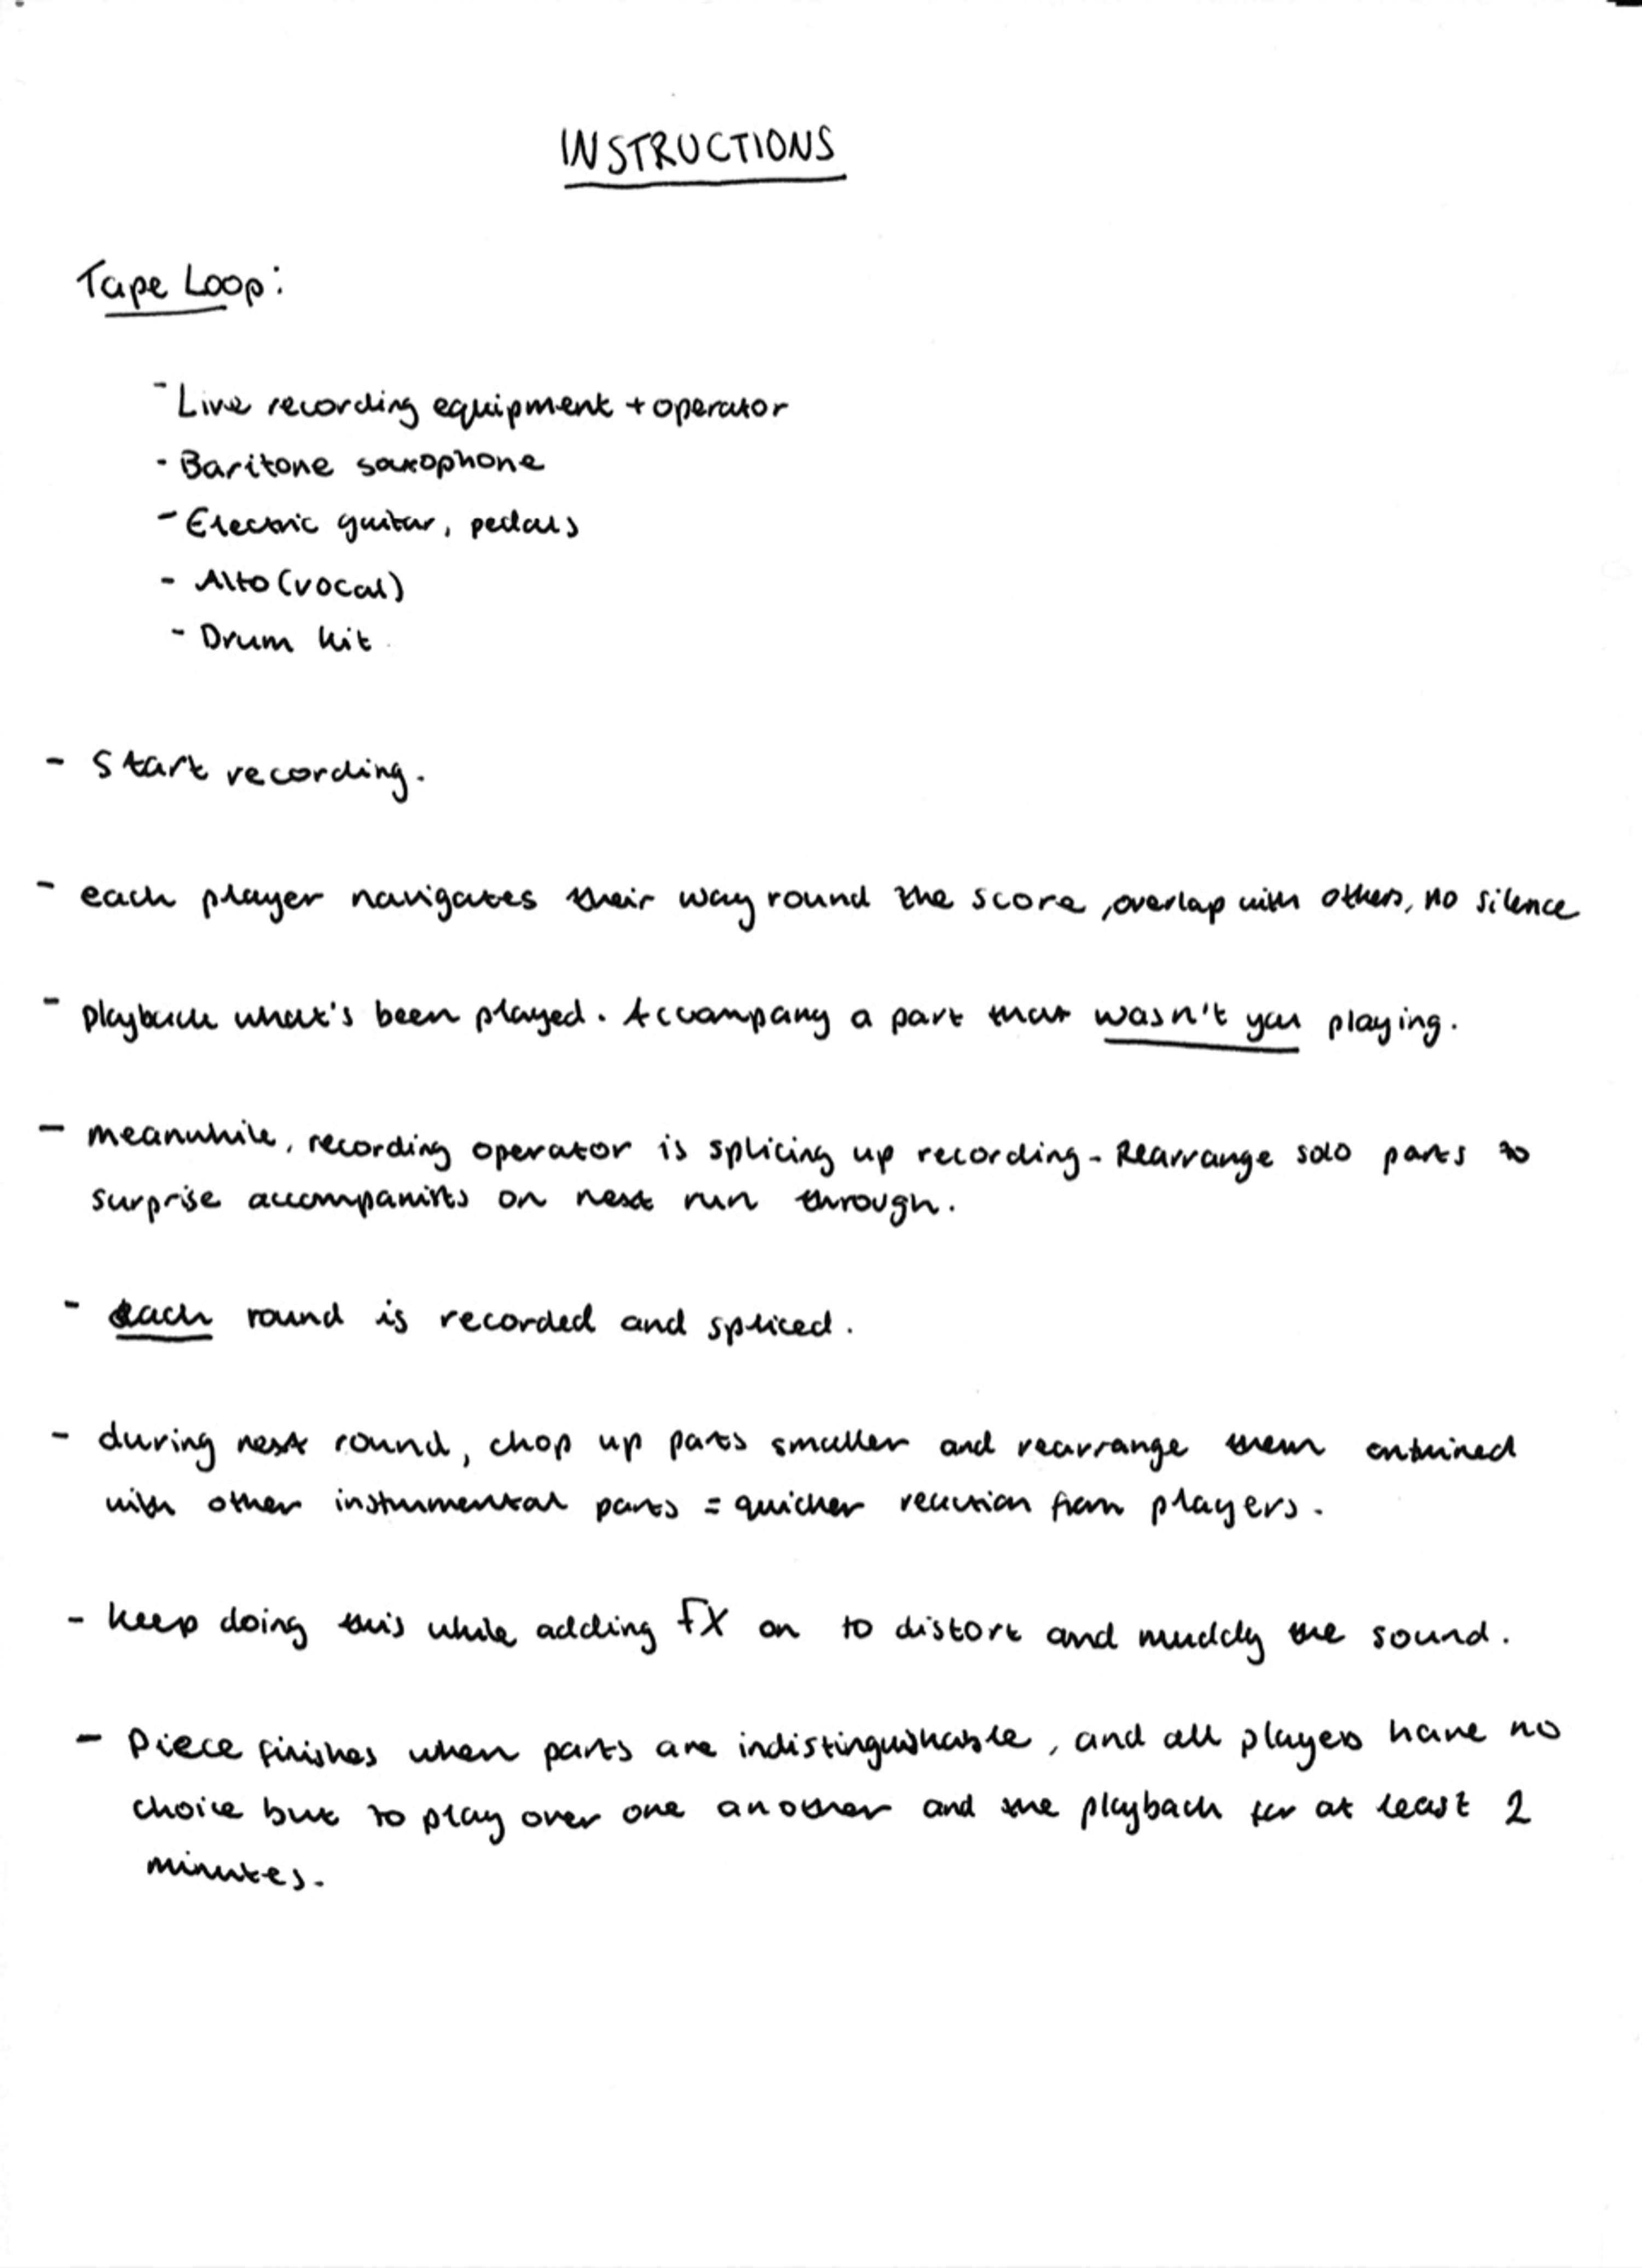 INSTRUCTIONS
Tape Loop:
- Live recording equipment + operator
- Baritone saxophone
- Electric guitar, pedals
- Alto (vocal)
- Drum kit
- Start recording.
- each player navigates their way round the score, overlap with others, no silence
- playback what's been played. Accompany a part that wasn't you playing.
- meanwhile, recording operator is splicing up recording - Rearrange solo parts to
surprise accompanists on next run through.
- each round is recorded and spliced.
- during next round, chop up parts smaller and rearrange them entwined
with other instrumental parts = quicker reaction from players.
- keep doing this while adding FX on to distort and muddy the sound.
- piece finishes when parts are indistinguishable, and all players have no
choice but to play over one another and the playback for at least 2
minutes.